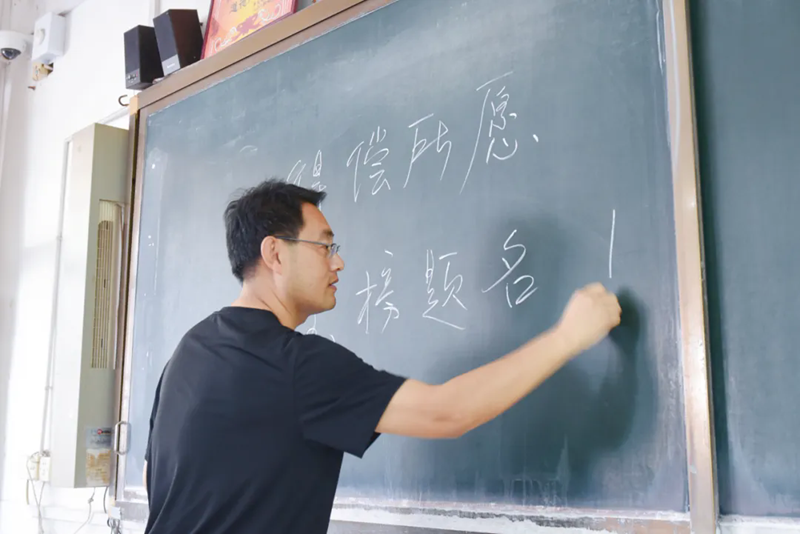 得偿所愿、
榜题名！